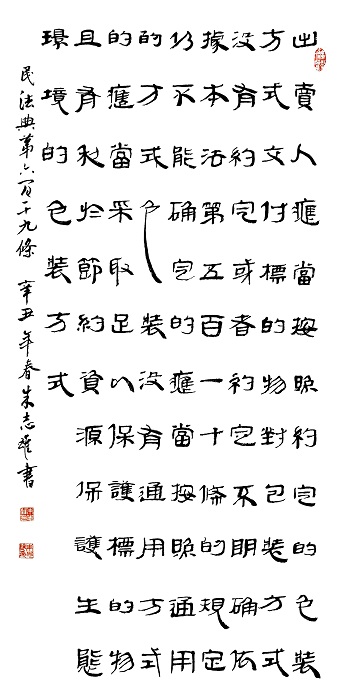 出賣人應當按照約定的包裝
方式交付標的物對包裝方式
没有約定或者約定不明确依
據本法第五百一十條的規定
仍不能确定的應當按照通用
的方式包裝没有通用方式
的應當采取足以保護標的物
且有利於節約資源保護生態
環境的包裝方式
民法典第六百十九條 辛丑年春朱志書